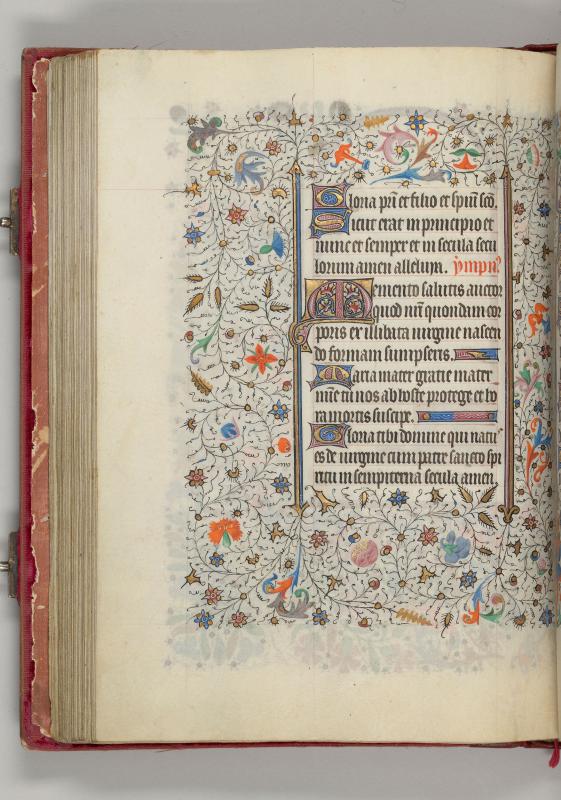 Gloria pri et filio et spiui sco.
Sicut erat in principio et
nunc et semper et in secula secu
lorum amen alleluya. ympn9
Memento salutis auctor
quod nri quondam cor
poris ex illibata uirgine nascen
do formam sumpseris.
Maria mater gratie mater
mie tu nos ab hoste protege et ho
ra mortis suscipe.
Gloria tibi domine qui natus
es de uirgine cum patre sancto spi
ritu in sempiterna secula amen.